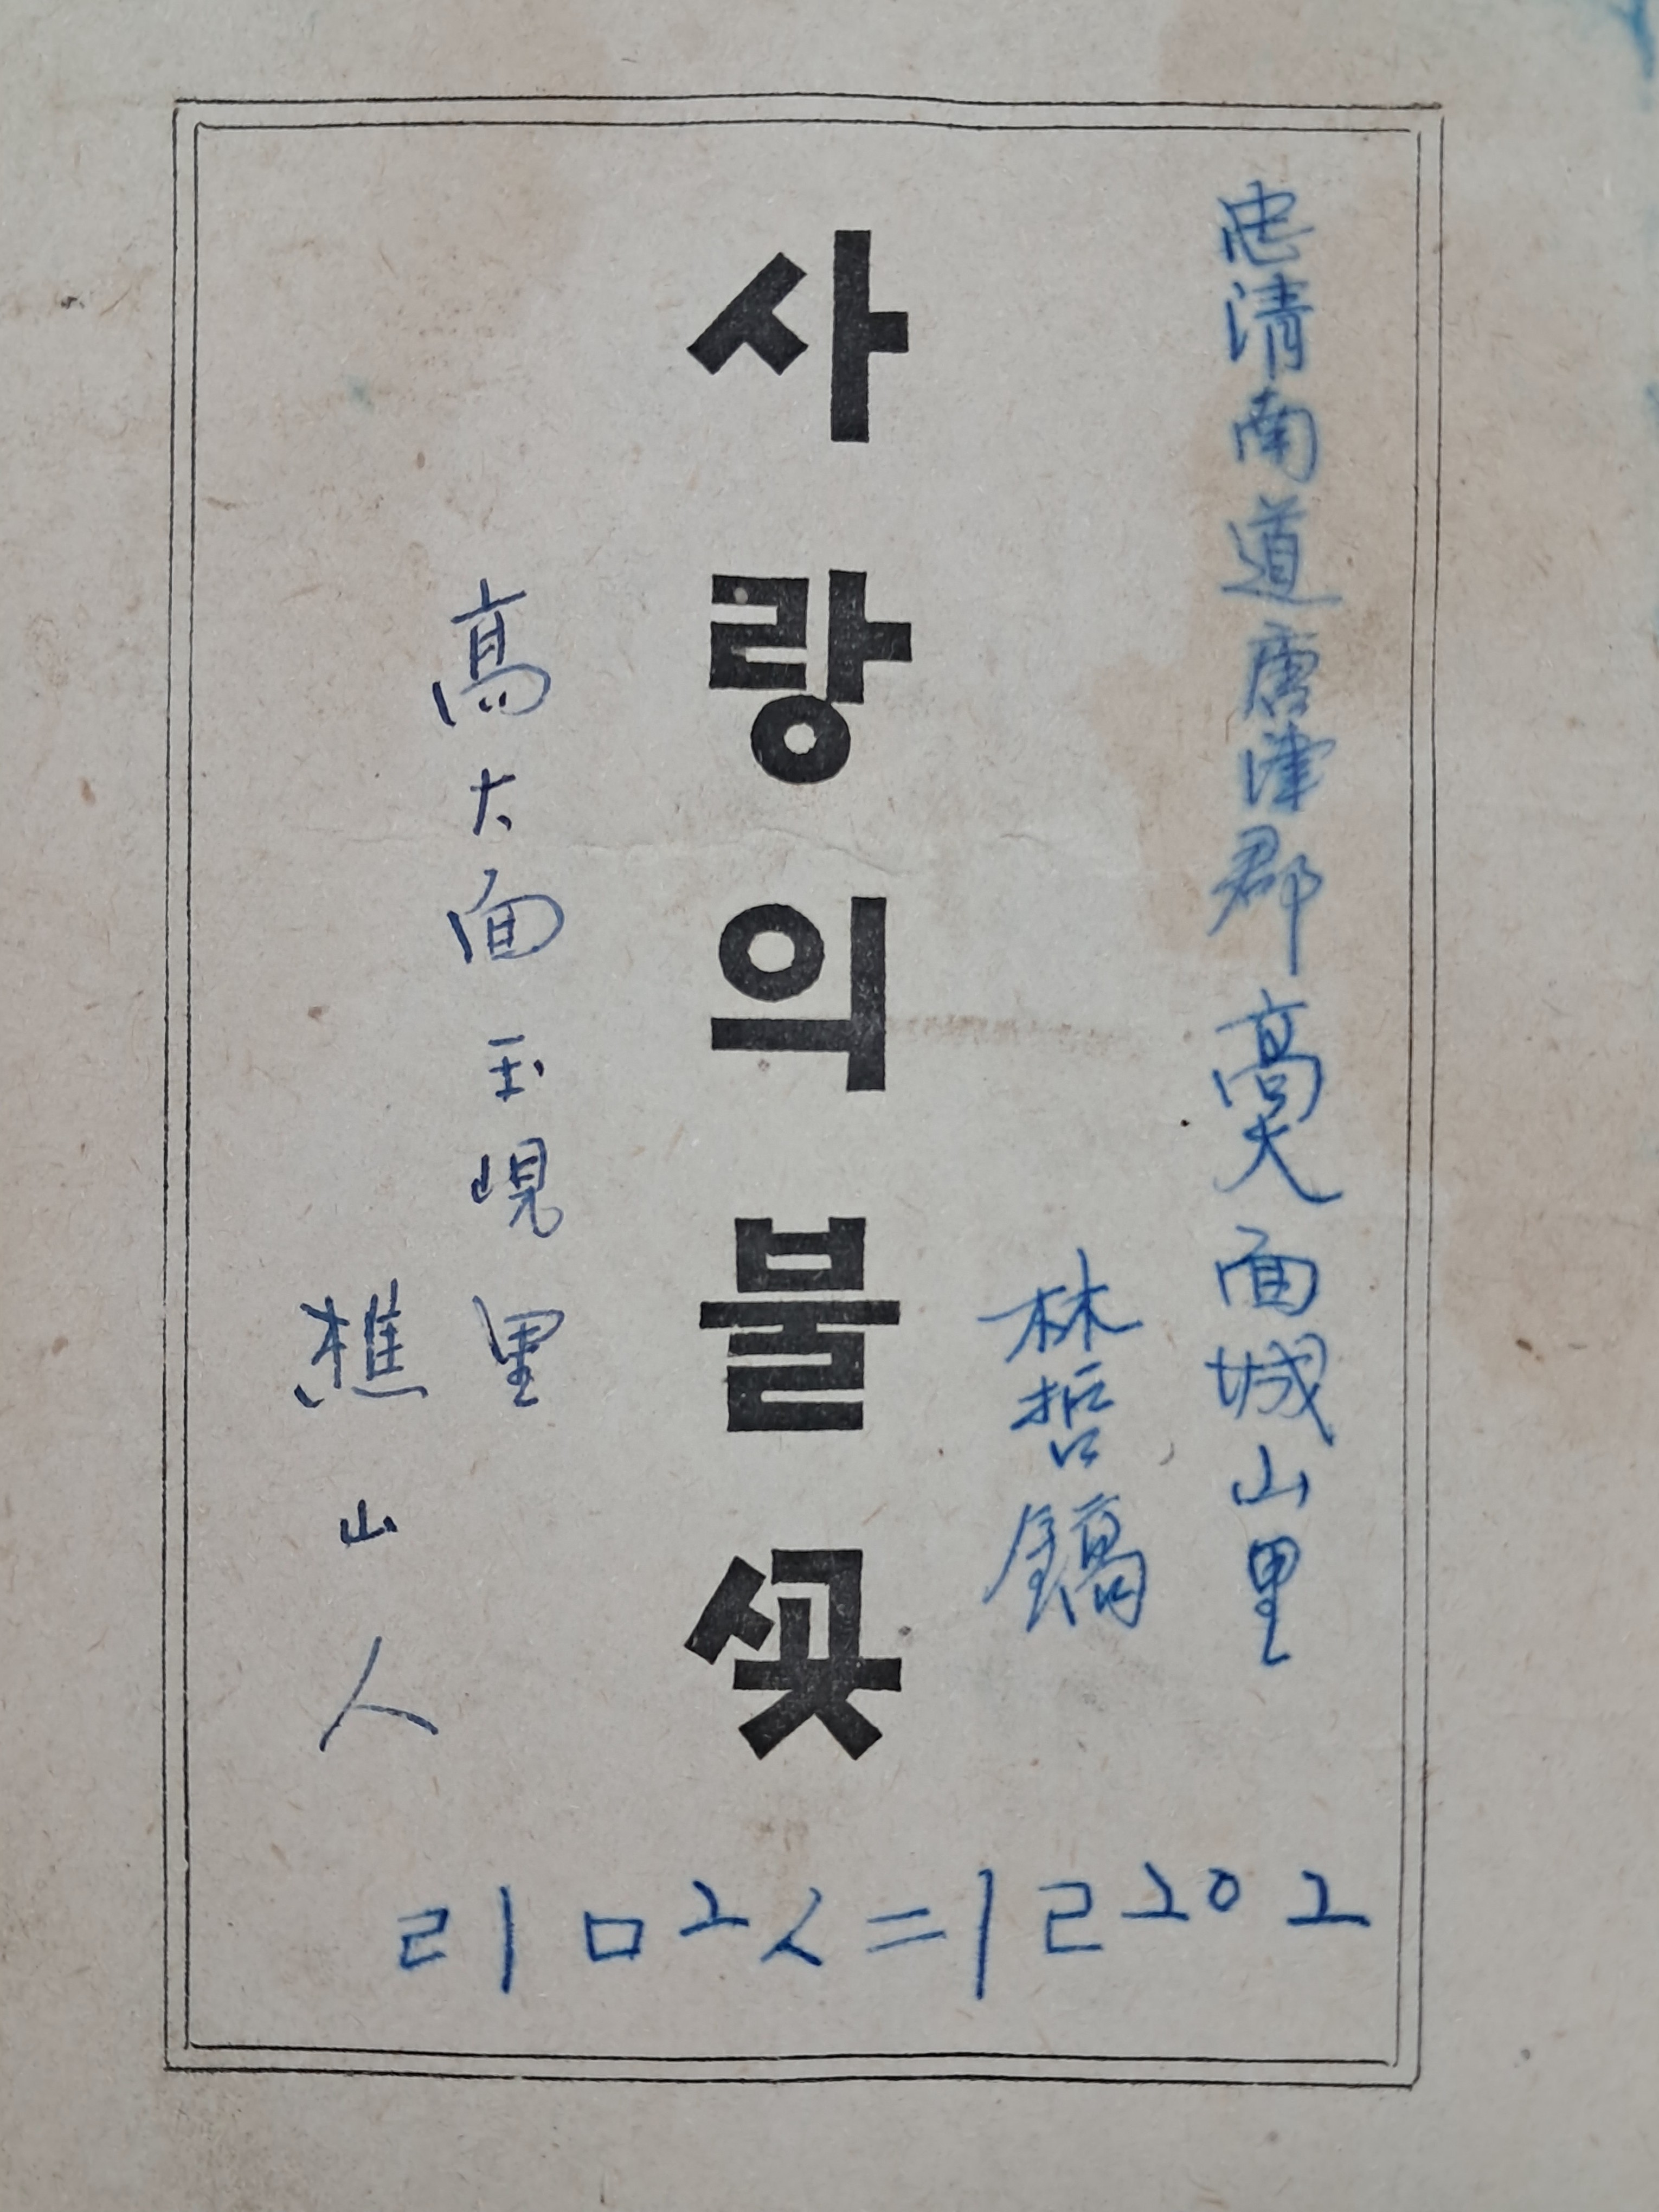 忠清南道唐津郡高大面城山里
林哲鎬
사랑의불ᄭᅩᆺ
高大面玉峴里
樵山人